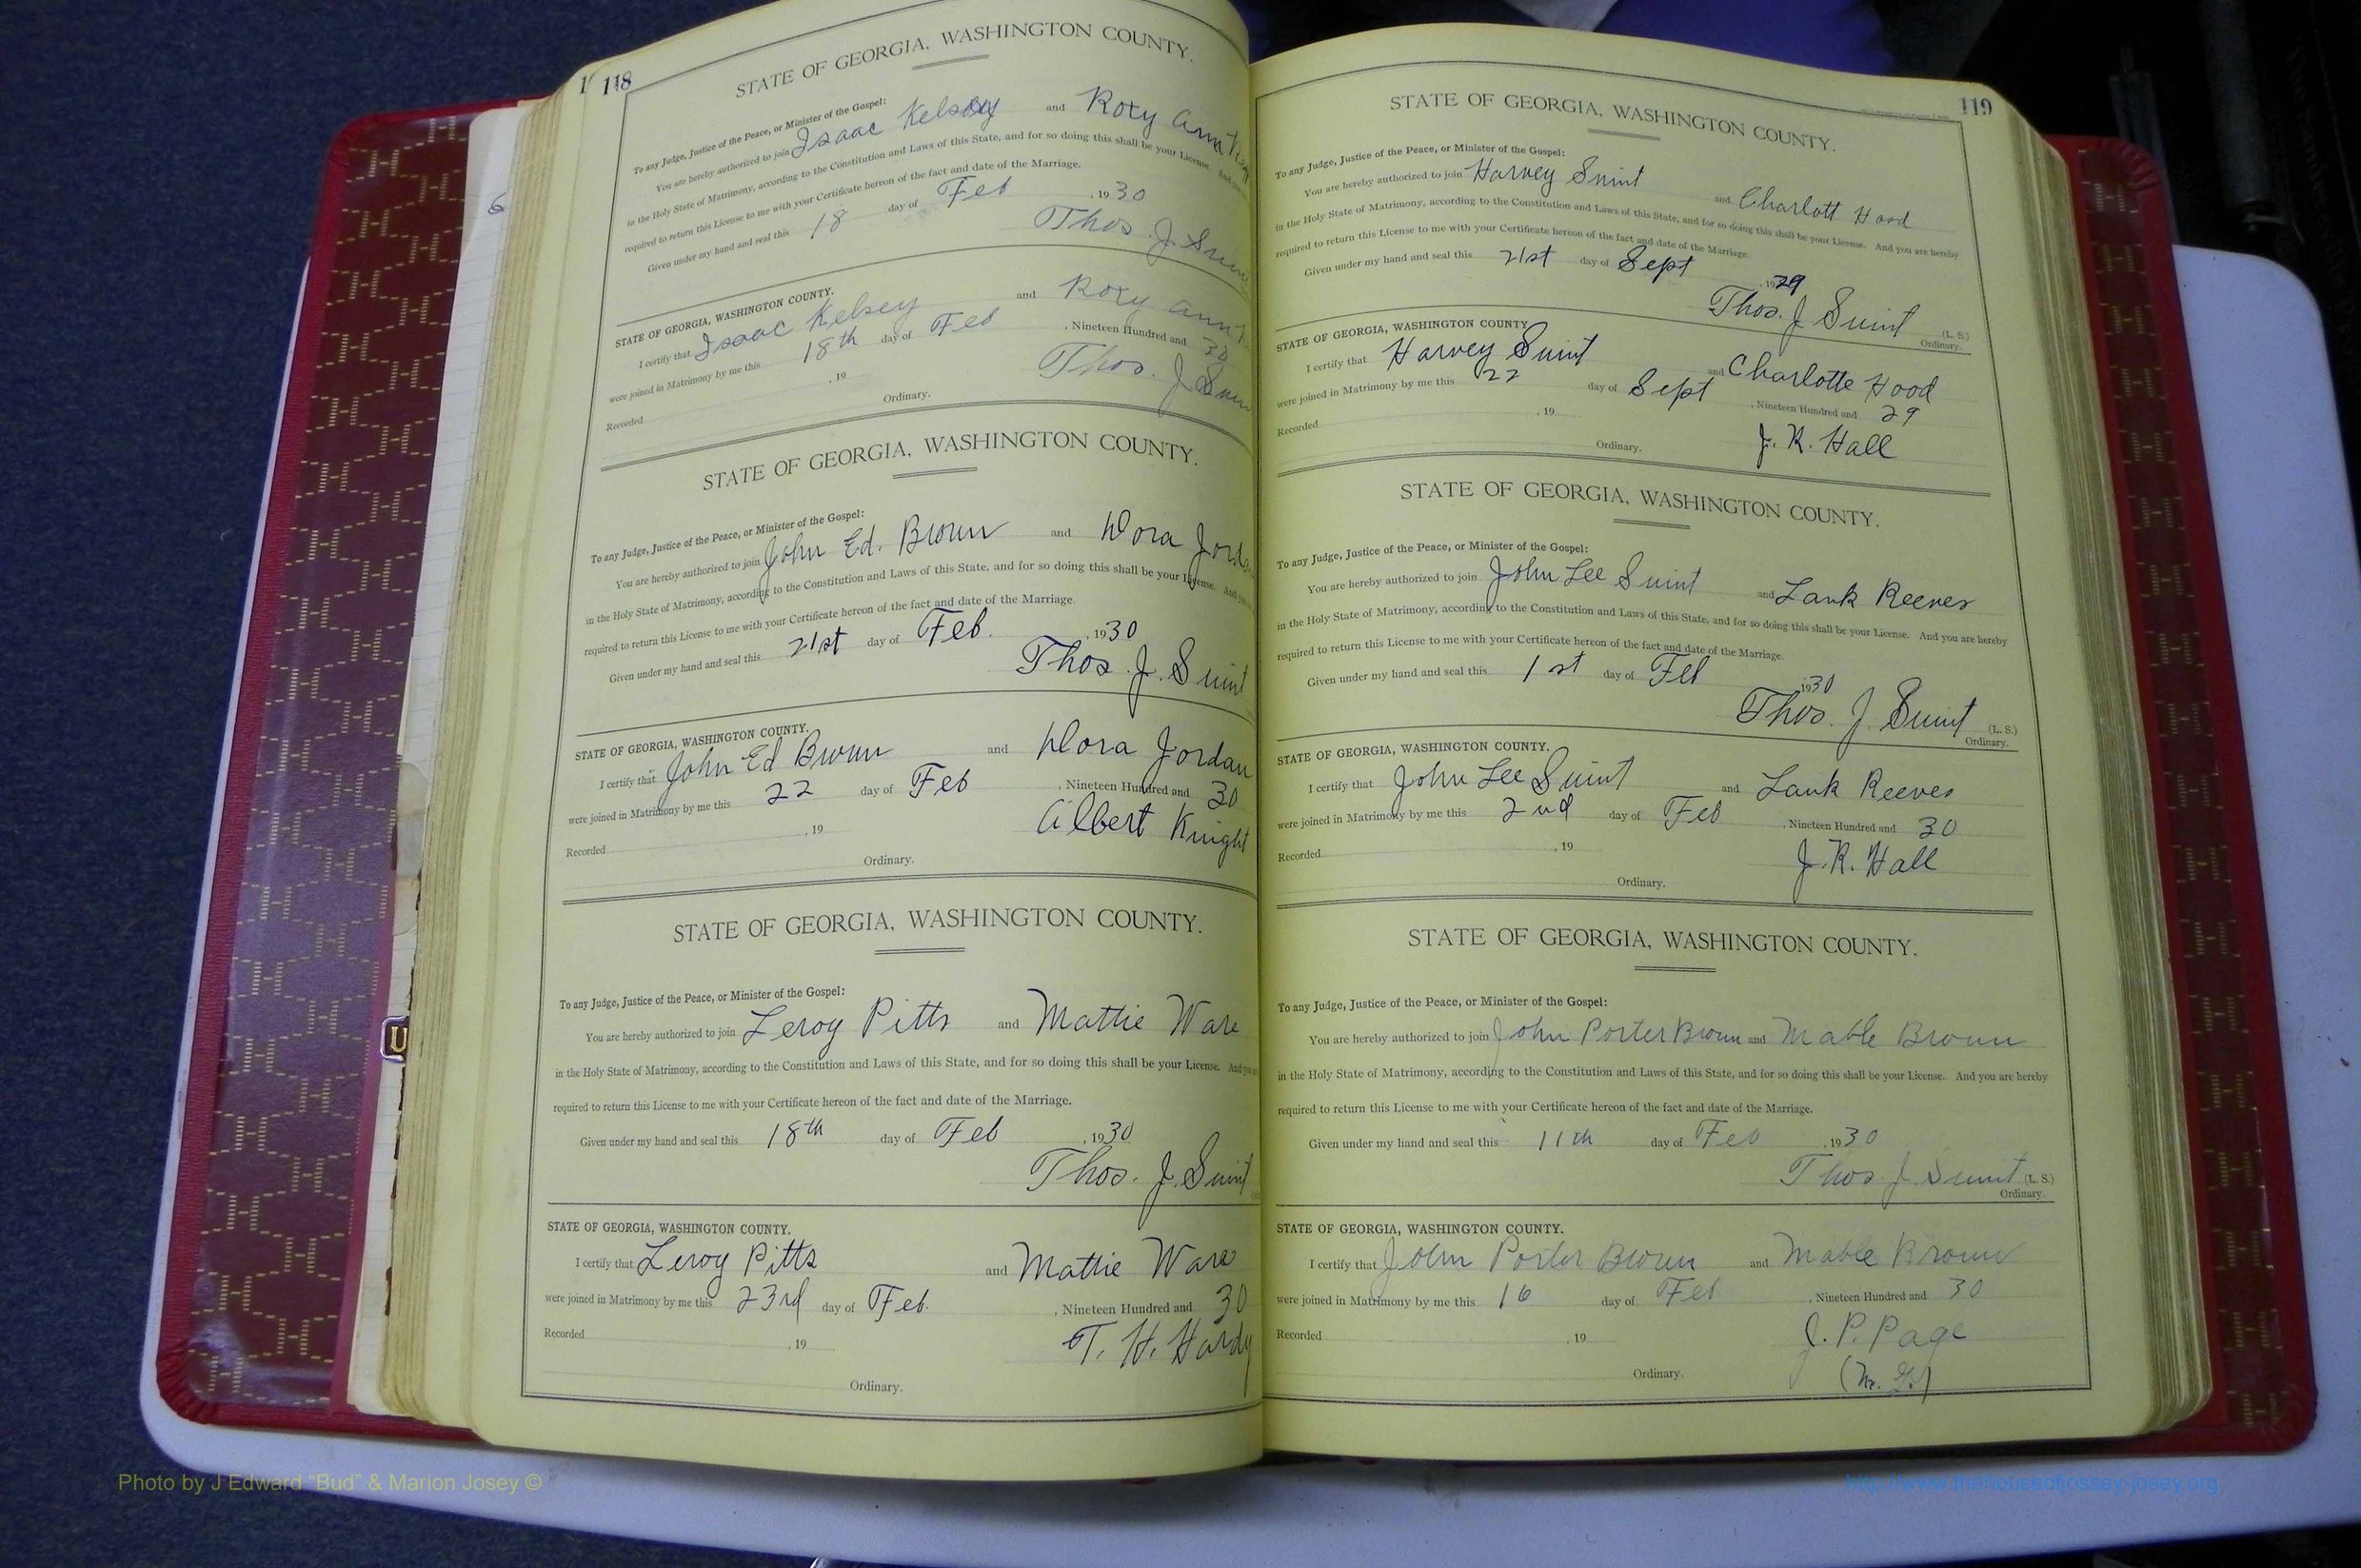 118
STATE OF GEORGIA, WASHINGTON COUNTY.
To any Judge, Justice of the Peace, or Minister of the Gospel:
You are hereby authorized to join Isaac Kelsey and Roxy Ann
in the Holy State of Matrimony, according to the Constitution and Laws of this State, and for so doing this shall be your License. And you
required to return this License to me with your Certificate hereon of the fact and date of the Marriage.
Given under my hand and seal this 18 day of Feb , 1930
Thos. J. Swint
STATE OF GEORGIA, WASHINGTON COUNTY.
I certify that Isaac Kelsey and Roxy Ann
were joined in Matrimony by me this 18th day of Feb , Nineteen Hundred and 30
Recorded , 19 Thos. J. Swin
Ordinary.
STATE OF GEORGIA, WASHINGTON COUNTY.
To any Judge, Justice of the Peace, or Minister of the Gospel:
You are hereby authorized to join John Ed. Brown and Dora Jorda
in the Holy State of Matrimony, according to the Constitution and Laws of this State, and for so doing this shall be your License. And you
required to return this License to me with your Certificate hereon of the fact and date of the Marriage.
Given under my hand and seal this 21st day of Feb. , 1930
Thos. J. Swint
STATE OF GEORGIA, WASHINGTON COUNTY.
I certify that John Ed Brown and Dora Jordan
were joined in Matrimony by me this 22 day of Feb , Nineteen Hundred and 30
Recorded , 19 Albert Knight
Ordinary.
STATE OF GEORGIA, WASHINGTON COUNTY.
To any Judge, Justice of the Peace, or Minister of the Gospel:
You are hereby authorized to join Leroy Pitts and Mattie Ware
in the Holy State of Matrimony, according to the Constitution and Laws of this State, and for so doing this shall be your License. And you
required to return this License to me with your Certificate hereon of the fact and date of the Marriage.
Given under my hand and seal this 18th day of Feb , 1930
Thos. J. Swint
STATE OF GEORGIA, WASHINGTON COUNTY.
I certify that Leroy Pitts and Mattie Ware
were joined in Matrimony by me this 23rd day of Feb. , Nineteen Hundred and 30
Recorded , 19 T. H. Hardy
Ordinary.
119
STATE OF GEORGIA, WASHINGTON COUNTY.
To any Judge, Justice of the Peace, or Minister of the Gospel:
You are hereby authorized to join Harvey Swint and Charlott Hood
in the Holy State of Matrimony, according to the Constitution and Laws of this State, and for so doing this shall be your License. And you are hereby
required to return this License to me with your Certificate hereon of the fact and date of the Marriage.
Given under my hand and seal this 21st day of Sept , 1929
Thos. J. Swint (L. S.)
Ordinary.
STATE OF GEORGIA, WASHINGTON COUNTY.
I certify that Harvey Swint and Charlotte Hood
were joined in Matrimony by me this 22 day of Sept , Nineteen Hundred and 29
Recorded , 19 J. R. Hall
Ordinary.
STATE OF GEORGIA, WASHINGTON COUNTY.
To any Judge, Justice of the Peace, or Minister of the Gospel:
You are hereby authorized to join John Lee Swint and Lank Reeves
in the Holy State of Matrimony, according to the Constitution and Laws of this State, and for so doing this shall be your License. And you are hereby
required to return this License to me with your Certificate hereon of the fact and date of the Marriage.
Given under my hand and seal this 1st day of Feb , 1930
Thos. J. Swint (L. S.)
Ordinary.
STATE OF GEORGIA, WASHINGTON COUNTY.
I certify that John Lee Swint and Lank Reeves
were joined in Matrimony by me this 2nd day of Feb , Nineteen Hundred and 30
Recorded , 19 J. R. Hall
Ordinary.
STATE OF GEORGIA, WASHINGTON COUNTY.
To any Judge, Justice of the Peace, or Minister of the Gospel:
You are hereby authorized to join John Porter Brown and Mable Brown
in the Holy State of Matrimony, according to the Constitution and Laws of this State, and for so doing this shall be your License. And you are hereby
required to return this License to me with your Certificate hereon of the fact and date of the Marriage.
Given under my hand and seal this 11th day of Feb , 1930
Thos. J. Swint (L. S.)
Ordinary.
STATE OF GEORGIA, WASHINGTON COUNTY.
I certify that John Porter Brown and Mable Brown
were joined in Matrimony by me this 16 day of Feb , Nineteen Hundred and 30
Recorded , 19 J. P. Page
Ordinary. (M. G.)
Photo by J Edward “Bud” & Marion Josey ©
http://www.thehouseofjossey-josey.org